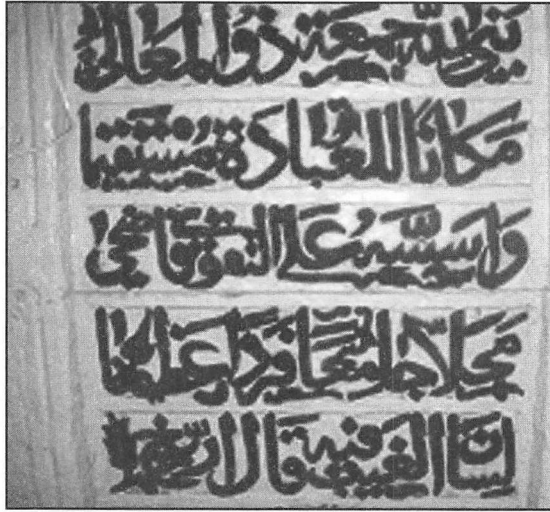 بنى لله جمعة ذو المعالي
مكانا للعبادة مستقيما
وأسسه على التقوى فأضحى
محلا جامعا فردا عظيما
لسان الغيب فيه قال